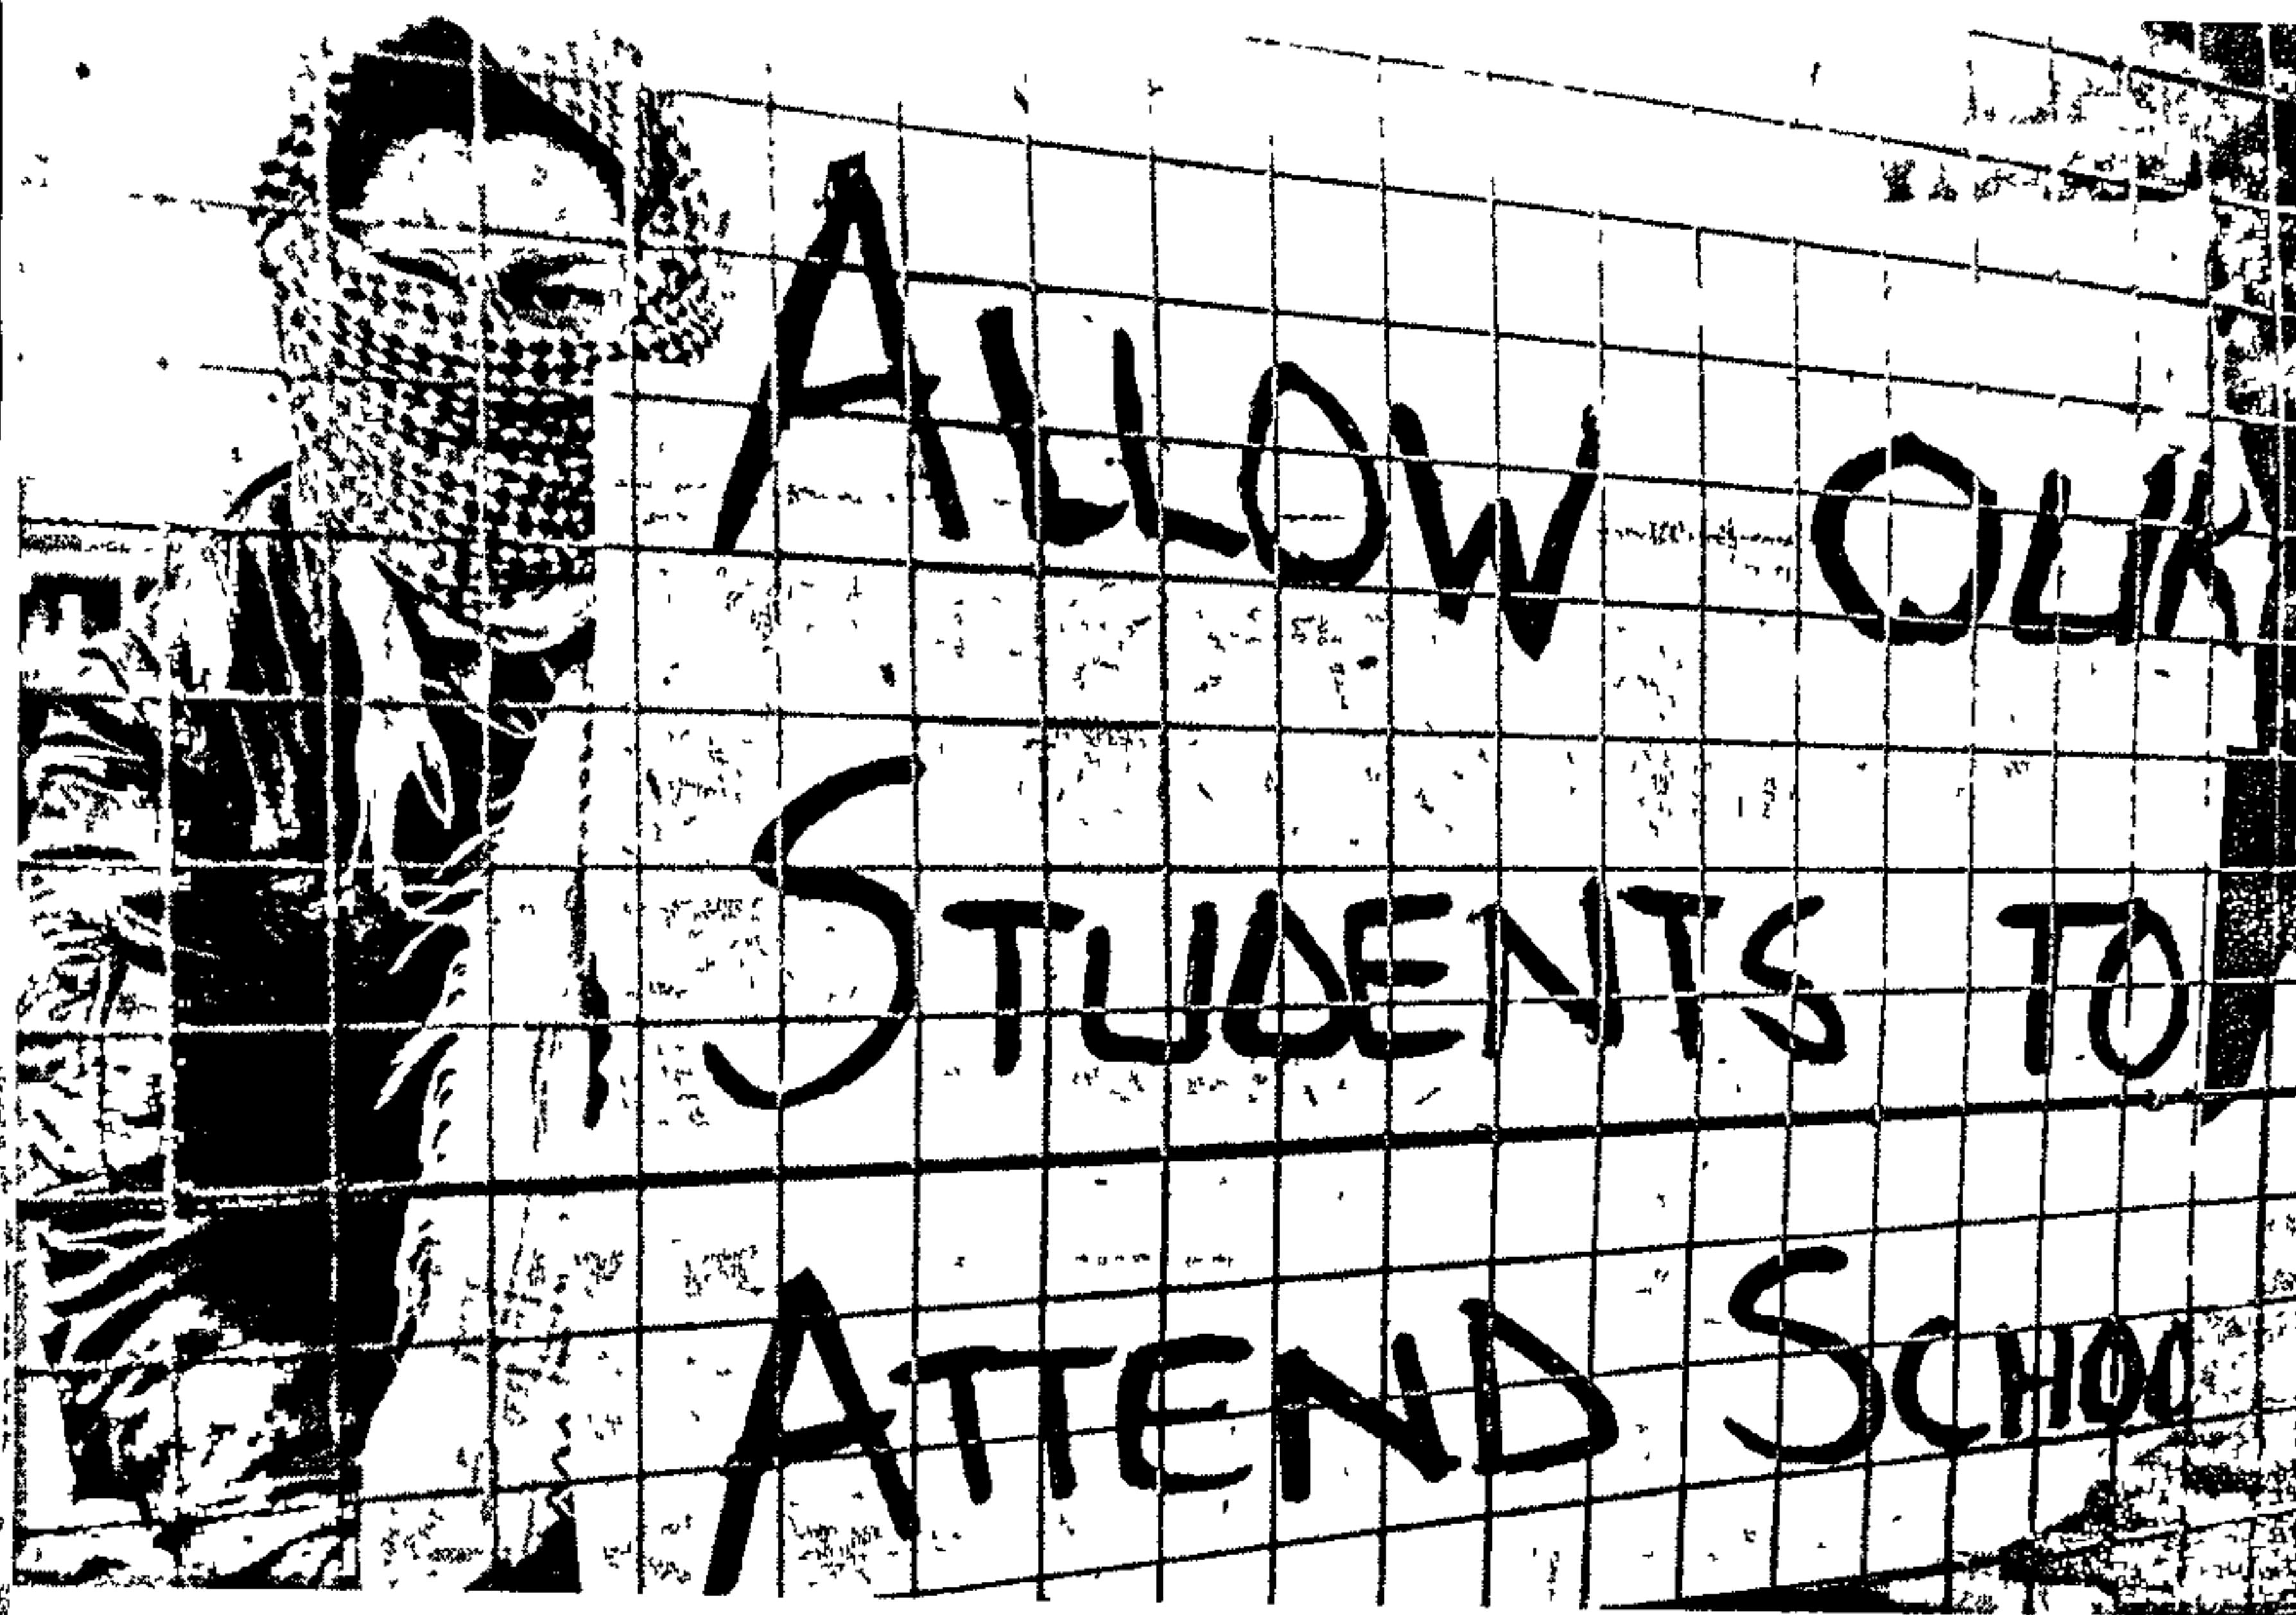 ALLOW OUR
STUDENTS TO
ATTEND SCHOO